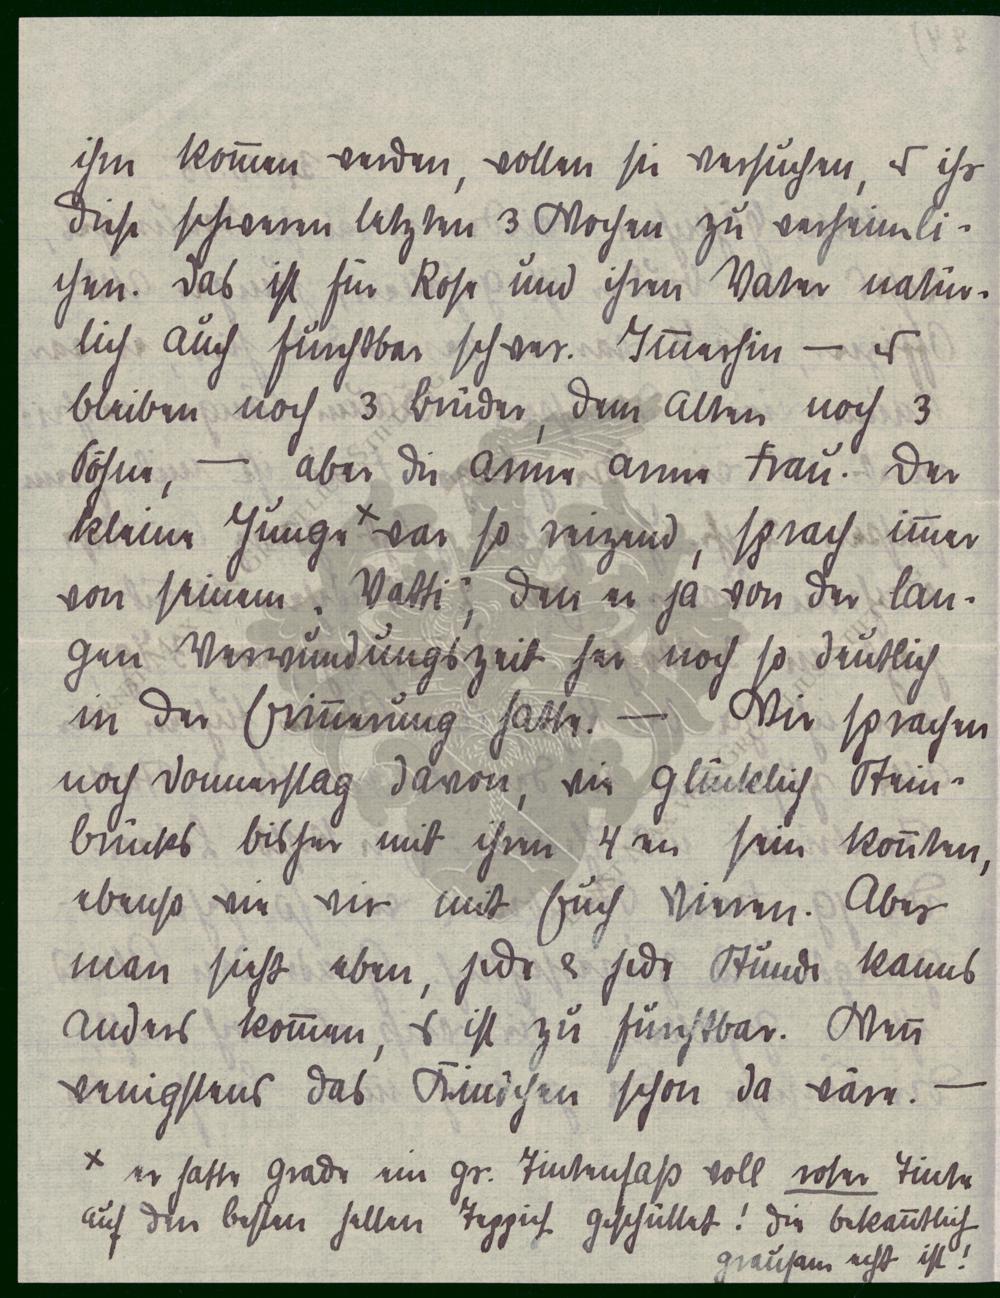 ihm kom̄en werden, wollen sie versuchen, u ihr
diese schweren letzten 3 Wochen zu verheimli-
chen. Das ist für Rose und ihren Vater natür-
lich auch furchtbar schwer. Im̄erhin — es
bleiben noch 3 Brüder, dem Alten noch 3
Söhne, — aber die arme arme Frau. Der
kleine Junge x war so reizend, sprach im̄er
von seinem „Vatti", den er ja von der lan-
gen Verwundungszeit her noch so deutlich
in der Erin̄erung hatte. — Wir sprachen
noch Donnerstag davon, wie glücklich Stein-
brücks bisher mit ihren 4 en sein kon̄ten,
ebenso wie wir mit Euch Vieren. Aber
man sieht eben, jede & jede Stunde kanns
anders kom̄en, es ist zu furchtbar. Wen̄
wenigstens das Kindchen schon da wäre. —
x er hatte grade ein gr. Tintenfaß voll roter Tinte
auf den besten hellen Teppich geschüttet! die bekan̄tlich
grausam echt ist!